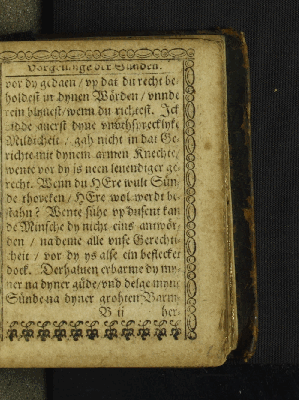 Vorgevinge der Sünden.
vor dy gedaen / vp dat du recht be-
holdest in dynen Wörden / vnnde
rein bluuest / wenn du richtest. Ick
bidde auerst dyne vnuthsprecklyke
Mildicheit / gah nicht in dat Ge-
richte mit dynem armen Knechte /
wente vor dy is neen leuendiger ge-
recht. Wenn du HEre wult Sün-
de thoreken / HEre wol werdt be-
stahn? Wente sühe vp dusent kan
de Minsche dy nicht eins antwor-
den / na deme alle vnse Gerechti-
cheit / vor dy ys alse ein beflecket
doek. Derhaluen erbarme dy my-
ner na dyner güde / vnd delge myne
Sünde na dyner grohten Barm-
B ii her-